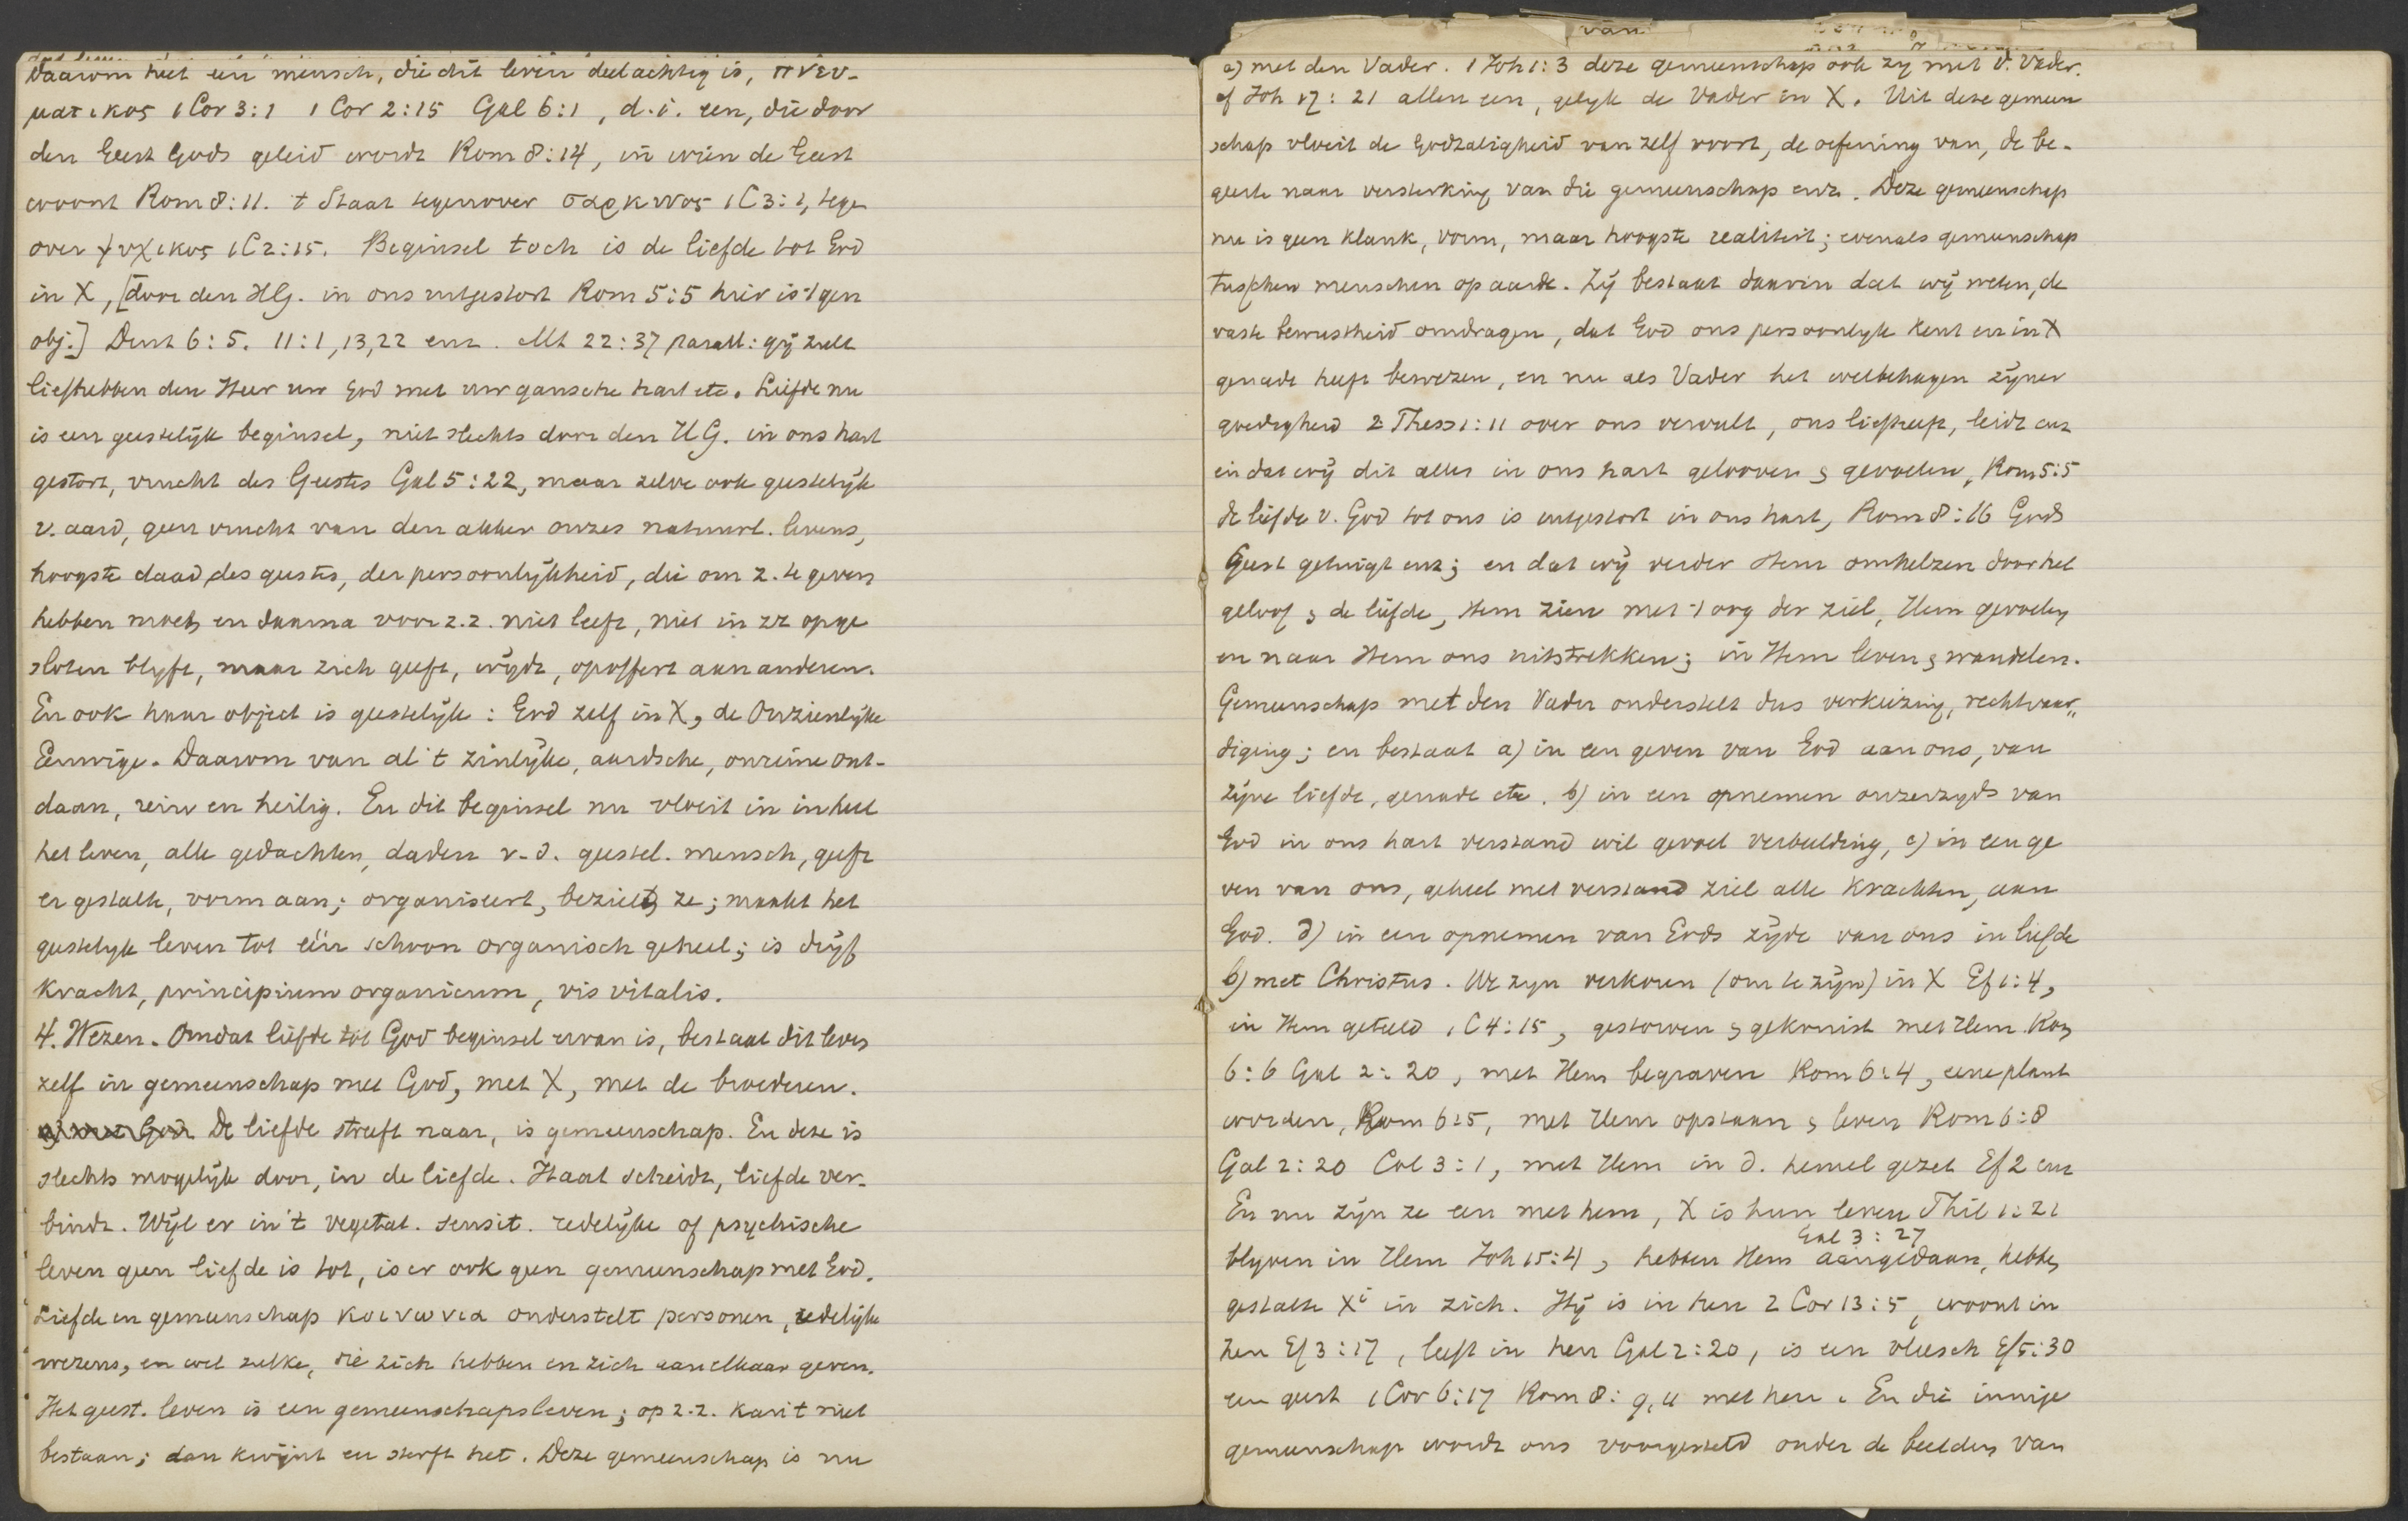 Daarom heet een mensch, die dit leven deelachtig is, πνευ-
ματικος 1 Cor 3:1 1 Cor 2:15 Gal 6:1, d.i. een, die door
den Geest Gods geleid wordt Rom 8:14, in wien de Geest
woont Rom 8:11. 't Staat tegenover σαρκινος 1C 3:1, tegen
over ψυχικος 1C 2:15. Beginsel toch is de liefde tot God
in X, [door den HG. in ons uitgestort Rom 5:5 hier is 't gen
obj.] Deut 6:5. 11:1,13,22 enz. Mt 22:37 parall: gij zult
liefhebben den Heer uw God met uw gansche hart etc. Liefde nu
is een geestelijk beginsel, niet slechts door den HG. in ons hart
gestort, vrucht des Geestes Gal 5:22, maar zelve ook geestelijk
v. aard, geen vrucht van den akker onzes natuurl. levens,
hoogste daad des geestes, der persoonlijkheid, die om z. te geven
hebben moet, en daarna voor z.z. niet leeft, niet in zz opge
sloten blyft, maar zich geeft, wijdt, opoffert aan anderen.
En ook haar object is geestelijk: God zelf in X, de Onzienlijke
Eeuwige. Daarom van al 't zinlijke, aardsche, onreine ont-
daan, rein en heilig. En dit beginsel nu vloeit in in heel
het leven, alle gedachten, daden v.d. geestel. mensch, geeft
er gestalte, vorm aan; organiseert, bezielt ze; maakt het
geestelyk leven tot één schoon organisch geheel; is drijf
kracht, principium organicum, vis vitalis.
4. Wezen. Omdat liefde tot God beginsel ervan is, bestaat dit leven
zelf in gemeenschap met God, met X, met de broederen.
a) met God De liefde streeft naar, is gemeenschap. En deze is
slechts mogelijk door, in de liefde. Haat scheidt, liefde ver-
bindt. Wijl er in 't vegetat. sensit. redelijke of psychische
leven geen liefde is tot, is er ook geen gemeenschap met God.
Liefde en gemeenschap κοινωνια onderstelt personen, redelijke
wezens, en wel zulke, die zich hebben en zich aan elkaar geven.
Het geest. leven is een gemeenschapsleven; op z.z. kan 't niet
bestaan; dan kwijnt en sterft het. Deze gemeenschap is nu
van
a) met den Vader. 1 Joh 1:3 deze gemeenschap ook zy met d. Vader.
cf Joh 17:21 allen een, gelyk de Vader in X. Uit deze gemeen
schap vloeit de Godzaligheid van zelf voort, de oefening van, de be-
geerte naar versterking van die gemeenschap enz. Deze gemeenschap
nu is geen klank, vorm, maar hoogste realiteit; evenals gemeenschap
tusschen menschen op aarde. Zij bestaat daarin dat wij weten, de
vaste bewustheid omdragen, dat God ons persoonlyk kent en in X
genade heeft bewezen, en nu als Vader het welbehagen zijner
goedigheid 2 Thess 1:11 over ons vervult, ons liefheeft, leidt enz
en dat wij dit alles in ons hart gelooven & gevoelen, Rom 5:5
de liefde v. God tot ons is uitgestort in ons hart, Rom 8:16 Gods
Geest getuigt enz; en dat wij verder Hem omhelzen door het
geloof & de liefde, Hem zien met 't oog der ziel, Hem gevoelen
en naar Hem ons uitstrekken; in Hem leven & wandelen.
Gemeenschap met den Vader onderstelt dus verkiezing, rechtvaar„
diging; en bestaat a) in een geven van God aan ons, van
zijne liefde, genade etc. b) in een opnemen onzerzyds van
God in ons hart verstand wil gevoel verbeelding, c) in een ge
ven van ons, geheel met verstand ziel alle krachten, aan
God. d) in een opnemen van Gods zijde van ons in liefde
b) met Christus. We zyn verkoren (om te zijn) in X Ef 1:4,
in Hem geteeld 1C 4:15, gestorven & gekruist met Hem Rom
6:6 Gal 2:20, met Hem begraven Rom 6:4, eene plant
worden, Rom 6:5, met Hem opstaan & leven Rom 6:8
Gal 2:20 Col 3:1, met Hem in d. hemel gezet Ef 2 enz
En nu zijn ze een met hem, X is hun leven Phil 1:21
Gal 3:27
blyven in Hem Joh 15:4, hebben Hem aangedaan, hebben
gestalte Xi in zich. Hij is in hen 2 Cor 13:5, woont in
hen Ef 3:17, leeft in hen Gal 2:20, is een vleesch Ef 5:30
een geest 1 Cor 6:17 Rom 8:9,11 met hen. En die innige
gemeenschap wordt ons voorgesteld onder de beelden van